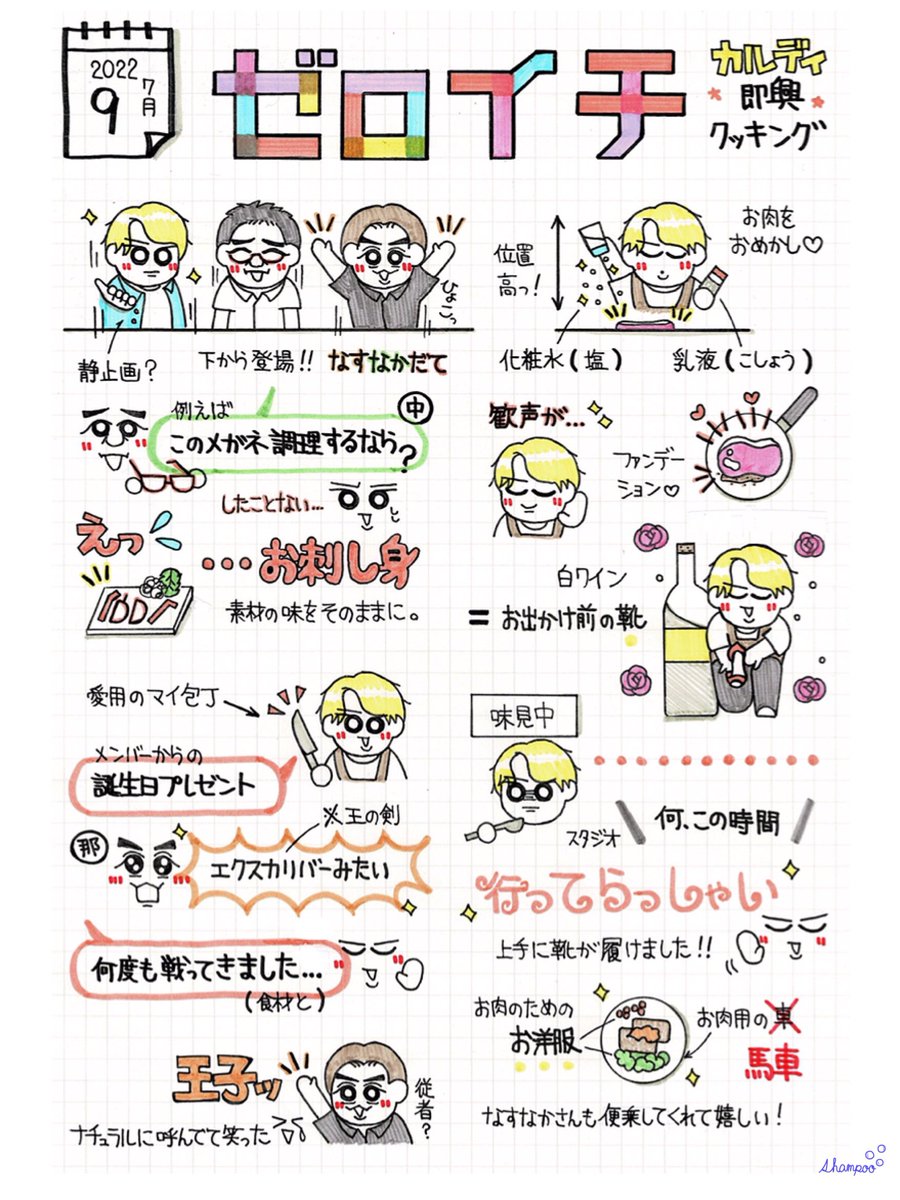 2022
7月
9
ゼロイチ
カルディ
即興
クッキング
静止画?
下から登場!! なすなかだて
ひょこっ
例えば
中
このメガネ調理するなら?
したことない…
えっ
…お刺し身
素材の味をそのままに。
愛用のマイ包丁
メンバーからの
誕生日プレゼント
※王の剣
那
エクスカリバーみたい
何度も戦ってきました…
(食材と)
王子ッ
従者?
ナチュラルに呼んでて笑った
位置
高っ!
お肉を
おめかし♡
化粧水(塩)
乳液(こしょう)
歓声が…
ファンデー
ション♡
白ワイン
=お出かけ前の靴
味見中
スタジオ
何、この時間
行ってらっしゃい
上手に靴が履けました!!
お肉のための
お洋服
お肉用の車
馬車
なすなかさんも便乗してくれて嬉しい!
Shampoo